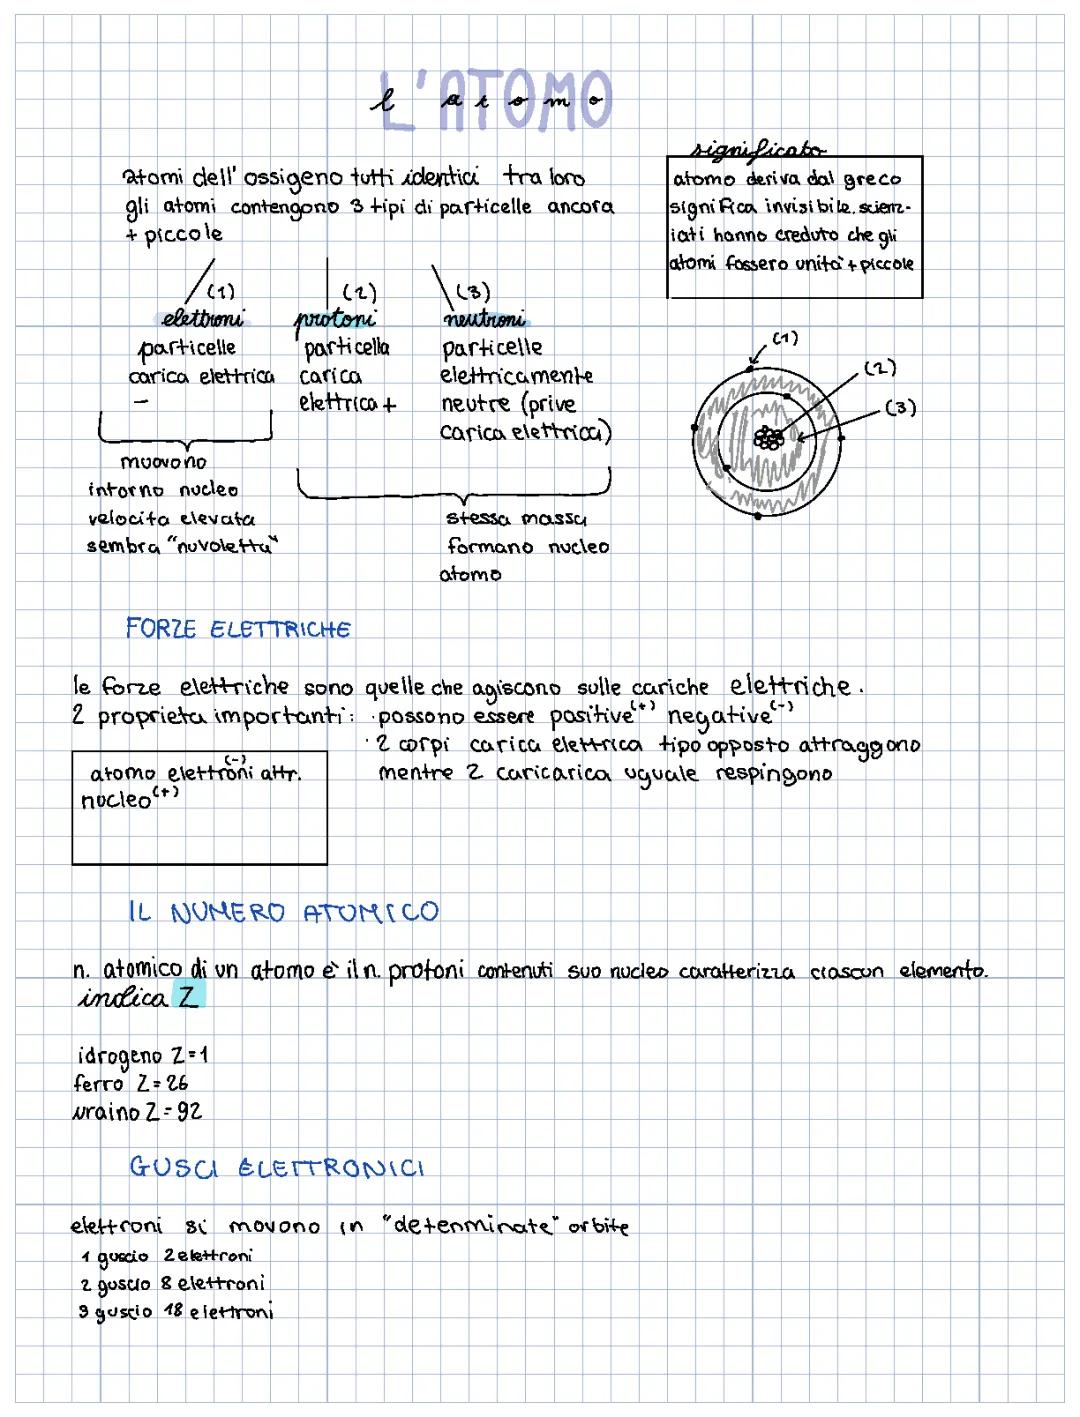 L'ATOMO
l'atomo
atomi dell'ossigeno tutti identici tra loro
gli atomi contengono 3 tipi di particelle ancora
+ piccole
significato
atomo deriva dal greco
significa invisibile. scienz-
iati hanno creduto che gli
atomi fossero unità + piccole
(1)
elettroni
particelle
carica elettrica
-
muovono
intorno nucleo
velocita elevata
sembra "nuvoletta"
(2)
protoni
particella
carica
elettrica +
(3)
neutroni
particelle
elettricamente
neutre (prive
carica elettrica)
stessa massa
formano nucleo
atomo
(1)
(2)
(3)
FORZE ELETTRICHE
le forze elettriche sono quelle che agiscono sulle cariche elettriche.
2 proprieta importanti: · possono essere positive(+) negative(-)
· 2 corpi carica elettrica tipo opposto attraggono
mentre 2 caricarica uguale respingono
atomo elettroni(-) attr.
nucleo(+)
IL NUMERO ATOMICO
n. atomico di un atomo è il n. protoni contenuti suo nucleo caratterizza ciascun elemento.
indica Z
idrogeno Z=1
ferro Z=26
uraino Z=92
GUSCI ELETTRONICI
elettroni si movono in "detenminate" orbite
1 guscio 2 elettroni
2 guscio 8 elettroni
3 guscio 18 elettroni